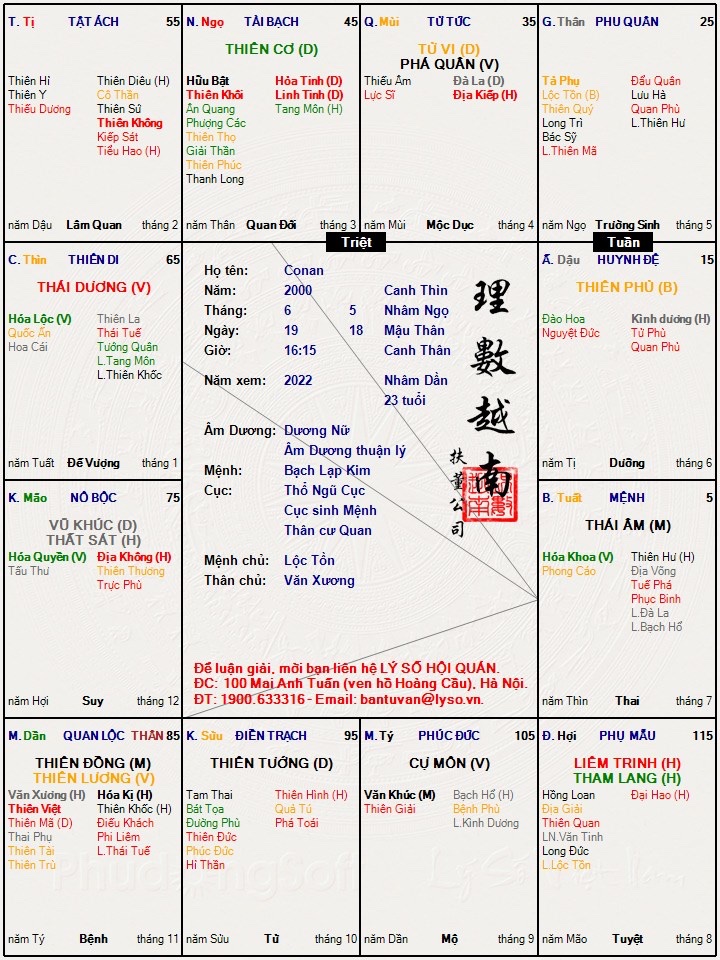 T. Tị TẬT ÁCH 55
Thiên Hỉ Thiên Diêu (H)
Thiên Y Cô Thần
Thiếu Dương Thiên Sứ
Thiên Không
Kiếp Sát
Tiểu Hao (H)
năm Dậu Lâm Quan tháng 2
N. Ngọ TÀI BẠCH 45
THIÊN CƠ (D)
Hữu Bật Hỏa Tinh (D)
Thiên Khôi Linh Tinh (D)
Ân Quang Tang Môn (H)
Phượng Các
Thiên Thọ
Giải Thần
Thiên Phúc
Thanh Long
năm Thân Quan Đới tháng 3
Q. Mùi TỬ TỨC 35
TỬ VI (D)
PHÁ QUÂN (V)
Thiếu Âm Đà La (D)
Lực Sĩ Địa Kiếp (H)
năm Mùi Mộc Dục tháng 4
G. Thân PHU QUÂN 25
Tả Phụ Đẩu Quân
Lộc Tồn (B) Lưu Hà
Thiên Quý Quan Phù
Long Trì L.Thiên Hư
Bác Sỹ
L.Thiên Mã
năm Ngọ Trường Sinh tháng 5
Triệt
Tuần
C. Thìn THIÊN DI 65
THÁI DƯƠNG (V)
Hóa Lộc (V) Thiên La
Quốc Ấn Thái Tuế
Hoa Cái Tướng Quân
L.Tang Môn
L.Thiên Khốc
năm Tuất Đế Vượng tháng 1
Họ tên: Conan
Năm: 2000 Canh Thìn
Tháng: 6 5 Nhâm Ngọ
Ngày: 19 18 Mậu Thân
Giờ: 16:15 Canh Thân
Năm xem: 2022 Nhâm Dần
23 tuổi
Âm Dương: Dương Nữ
Âm Dương thuận lý
Mệnh: Bạch Lạp Kim
Cục: Thổ Ngũ Cục
Cục sinh Mệnh
Thân cư Quan
Mệnh chủ: Lộc Tồn
Thân chủ: Văn Xương
理數越南
扶董公司
Để luận giải, mời bạn liên hệ LÝ SỐ HỘI QUÁN.
ĐC: 100 Mai Anh Tuấn (ven hồ Hoàng Cầu), Hà Nội.
ĐT: 1900.633316 - Email: bantuvan@lyso.vn.
Ấ. Dậu HUYNH ĐỆ 15
THIÊN PHỦ (B)
Đào Hoa Kình dương (H)
Nguyệt Đức Tử Phù
Quan Phủ
năm Tị Dưỡng tháng 6
K. Mão NÔ BỘC 75
VŨ KHÚC (D)
THẤT SÁT (H)
Hóa Quyền (V) Địa Không (H)
Tấu Thư Thiên Thương
Trực Phù
năm Hợi Suy tháng 12
B. Tuất MỆNH 5
THÁI ÂM (M)
Hóa Khoa (V) Thiên Hư (H)
Phong Cáo Địa Võng
Tuế Phá
Phục Binh
L.Đà La
L.Bạch Hổ
năm Thìn Thai tháng 7
M. Dần QUAN LỘC THÂN 85
THIÊN ĐỒNG (M)
THIÊN LƯƠNG (V)
Văn Xương (H) Hóa Kị (H)
Thiên Việt Thiên Khốc (H)
Thiên Mã (D) Điếu Khách
Thai Phụ Phi Liêm
Thiên Tài L.Thái Tuế
Thiên Trù
năm Tý Bệnh tháng 11
K. Sửu ĐIỀN TRẠCH 95
THIÊN TƯỚNG (D)
Tam Thai Thiên Hình (H)
Bát Tọa Quả Tú
Đường Phù Phá Toái
Thiên Đức
Phúc Đức
Hỉ Thần
năm Sửu Tử tháng 10
M. Tý PHÚC ĐỨC 105
CỰ MÔN (V)
Văn Khúc (M) Bạch Hổ (H)
Thiên Giải Bệnh Phù
L.Kình Dương
năm Dần Mộ tháng 9
Đ. Hợi PHỤ MẪU 115
LIÊM TRINH (H)
THAM LANG (H)
Hồng Loan Đại Hao (H)
Địa Giải
Thiên Quan
LN.Văn Tinh
Long Đức
L.Lộc Tồn
năm Mão Tuyệt tháng 8